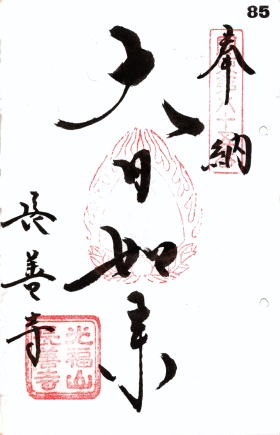 85
奉納
大日如来
長善寺
光福山
長善寺